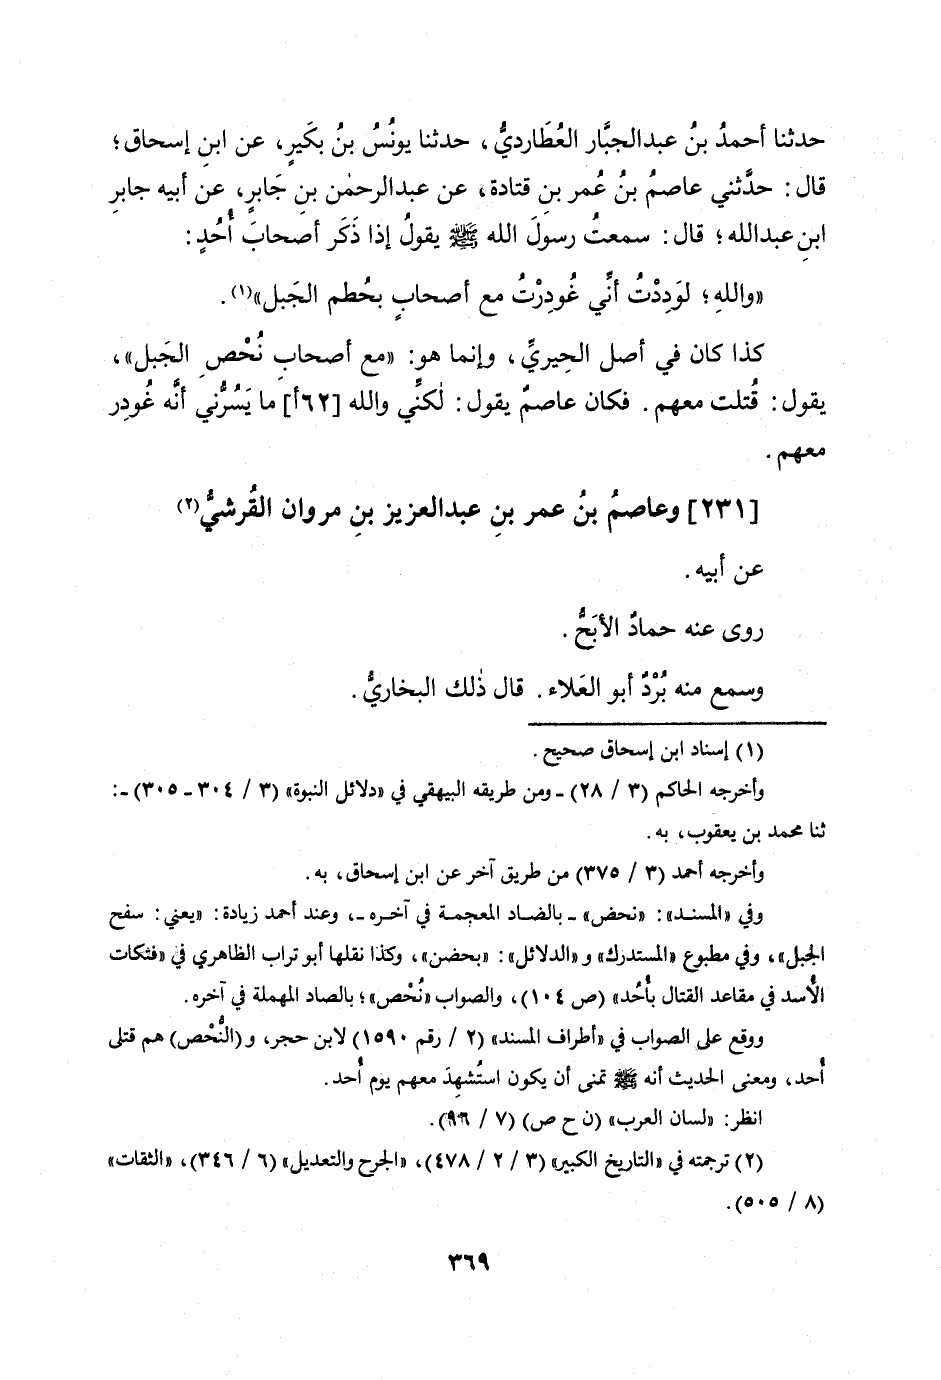 حدثنا أحمدُ بنُ عبدالجبَّار العُطَارديُّ، حدثنا يونُسُ بنُ بكَيرٍ، عن ابنِ إسحاق؛
قال: حدَّثني عاصمُ بنُ عُمر بنِ قتادة، عن عبدالرحمٰن بنِ جَابرٍ، عن أبيه جابرِ
ابنِ عبدالله؛ قال: سمعتُ رسولَ الله ﷺ يقولُ إذا ذَكَر أصحابَ أُحُدٍ:
«واللهِ؛ لوَدِدْتُ أنِّي غُودِرْتُ مع أصحابٍ بحُطم الجَبل»(١).
كذا كان في أصل الحِيريِّ، وإنما هو: «مع أصحابِ نُحْصِ الجَبل»،
يقول: قُتلت معهم. فكان عاصمٌ يقول: لٰكنِّي والله [٦٢أ] ما يَسُرُّني أنَّه غُودِر
معهم.
[٢٣١] وعاصمُ بنُ عمر بنِ عبدالعزيز بنِ مروان القُرشيُّ(٢)
عن أبيه.
روى عنه حمادٌ الأبَحُّ.
وسمع منه بُرْدٌ أبو العَلاء. قال ذٰلك البخاريُّ.
(١) إسناد ابن إسحاق صحيح.
وأخرجه الحاكم (٣ / ٢٨) ـ ومن طريقه البيهقي في «دلائل النبوة» (٣ / ٣٠٤ ـ ٣٠٥) ـ:
ثنا محمد بن يعقوب، به.
وأخرجه أحمد (٣ / ٣٧٥) من طريق آخر عن ابن إسحاق، به.
وفي «المسند»: «نحض» ـ بالضاد المعجمة في آخره ـ، وعند أحمد زيادة: «يعني: سفح
الجبل»، وفي مطبوع «المستدرك» و«الدلائل»: «بحضن»، وكذا نقلها أبو تراب الظاهري في «فتكات
الأُسد في مقاعد القتال بأُحُد» (ص ١٠٤)، والصواب «نُحْص»؛ بالصاد المهملة في آخره.
ووقع على الصواب في «أطراف المسند» (٢ / رقم ١٥٩٠) لابن حجر، و(النُّحْص) هم قتلى
أُحد، ومعنى الحديث أنه ﷺ تمنى أن يكون استُشهِدَ معهم يوم أُحد.
انظر: «لسان العرب» (ن ح ص) (٧ / ٩٦).
(٢) ترجمته في «التاريخ الكبير» (٣ / ٢ / ٤٧٨)، «الجرح والتعديل» (٦ / ٣٤٦)، «الثقات»
(٨ / ٥٠٥).
٣٦٩